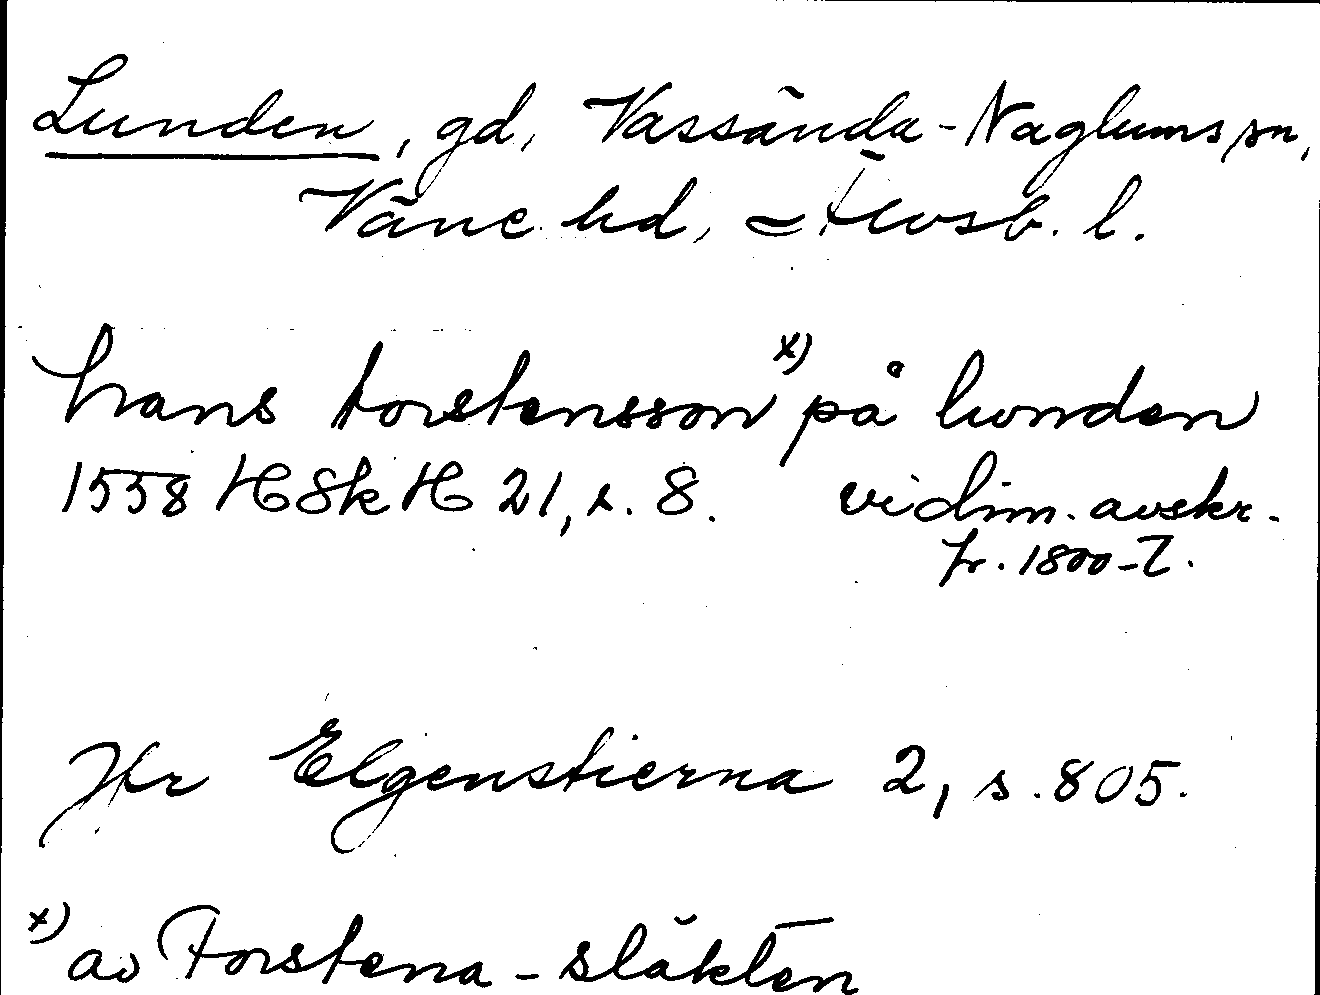 Lunden, gd, Vassända-Naglums sn,
Väne hd, Älvsb. l.
hans torstensson x) på lunden
1558 HSkH 21, s. 8. vidim. avskr.
fr. 1800-t.
Jfr Elgenstierna 2, s. 805.
x) av Forstena-släkten